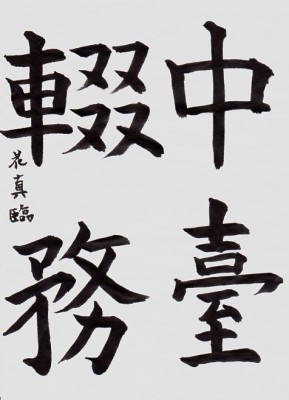 中臺
輟務
花真臨